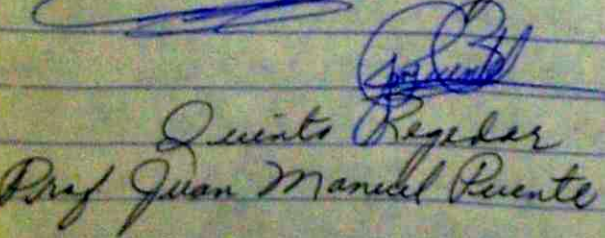 Quinto Regedor
Prof Juan Manuel Puente